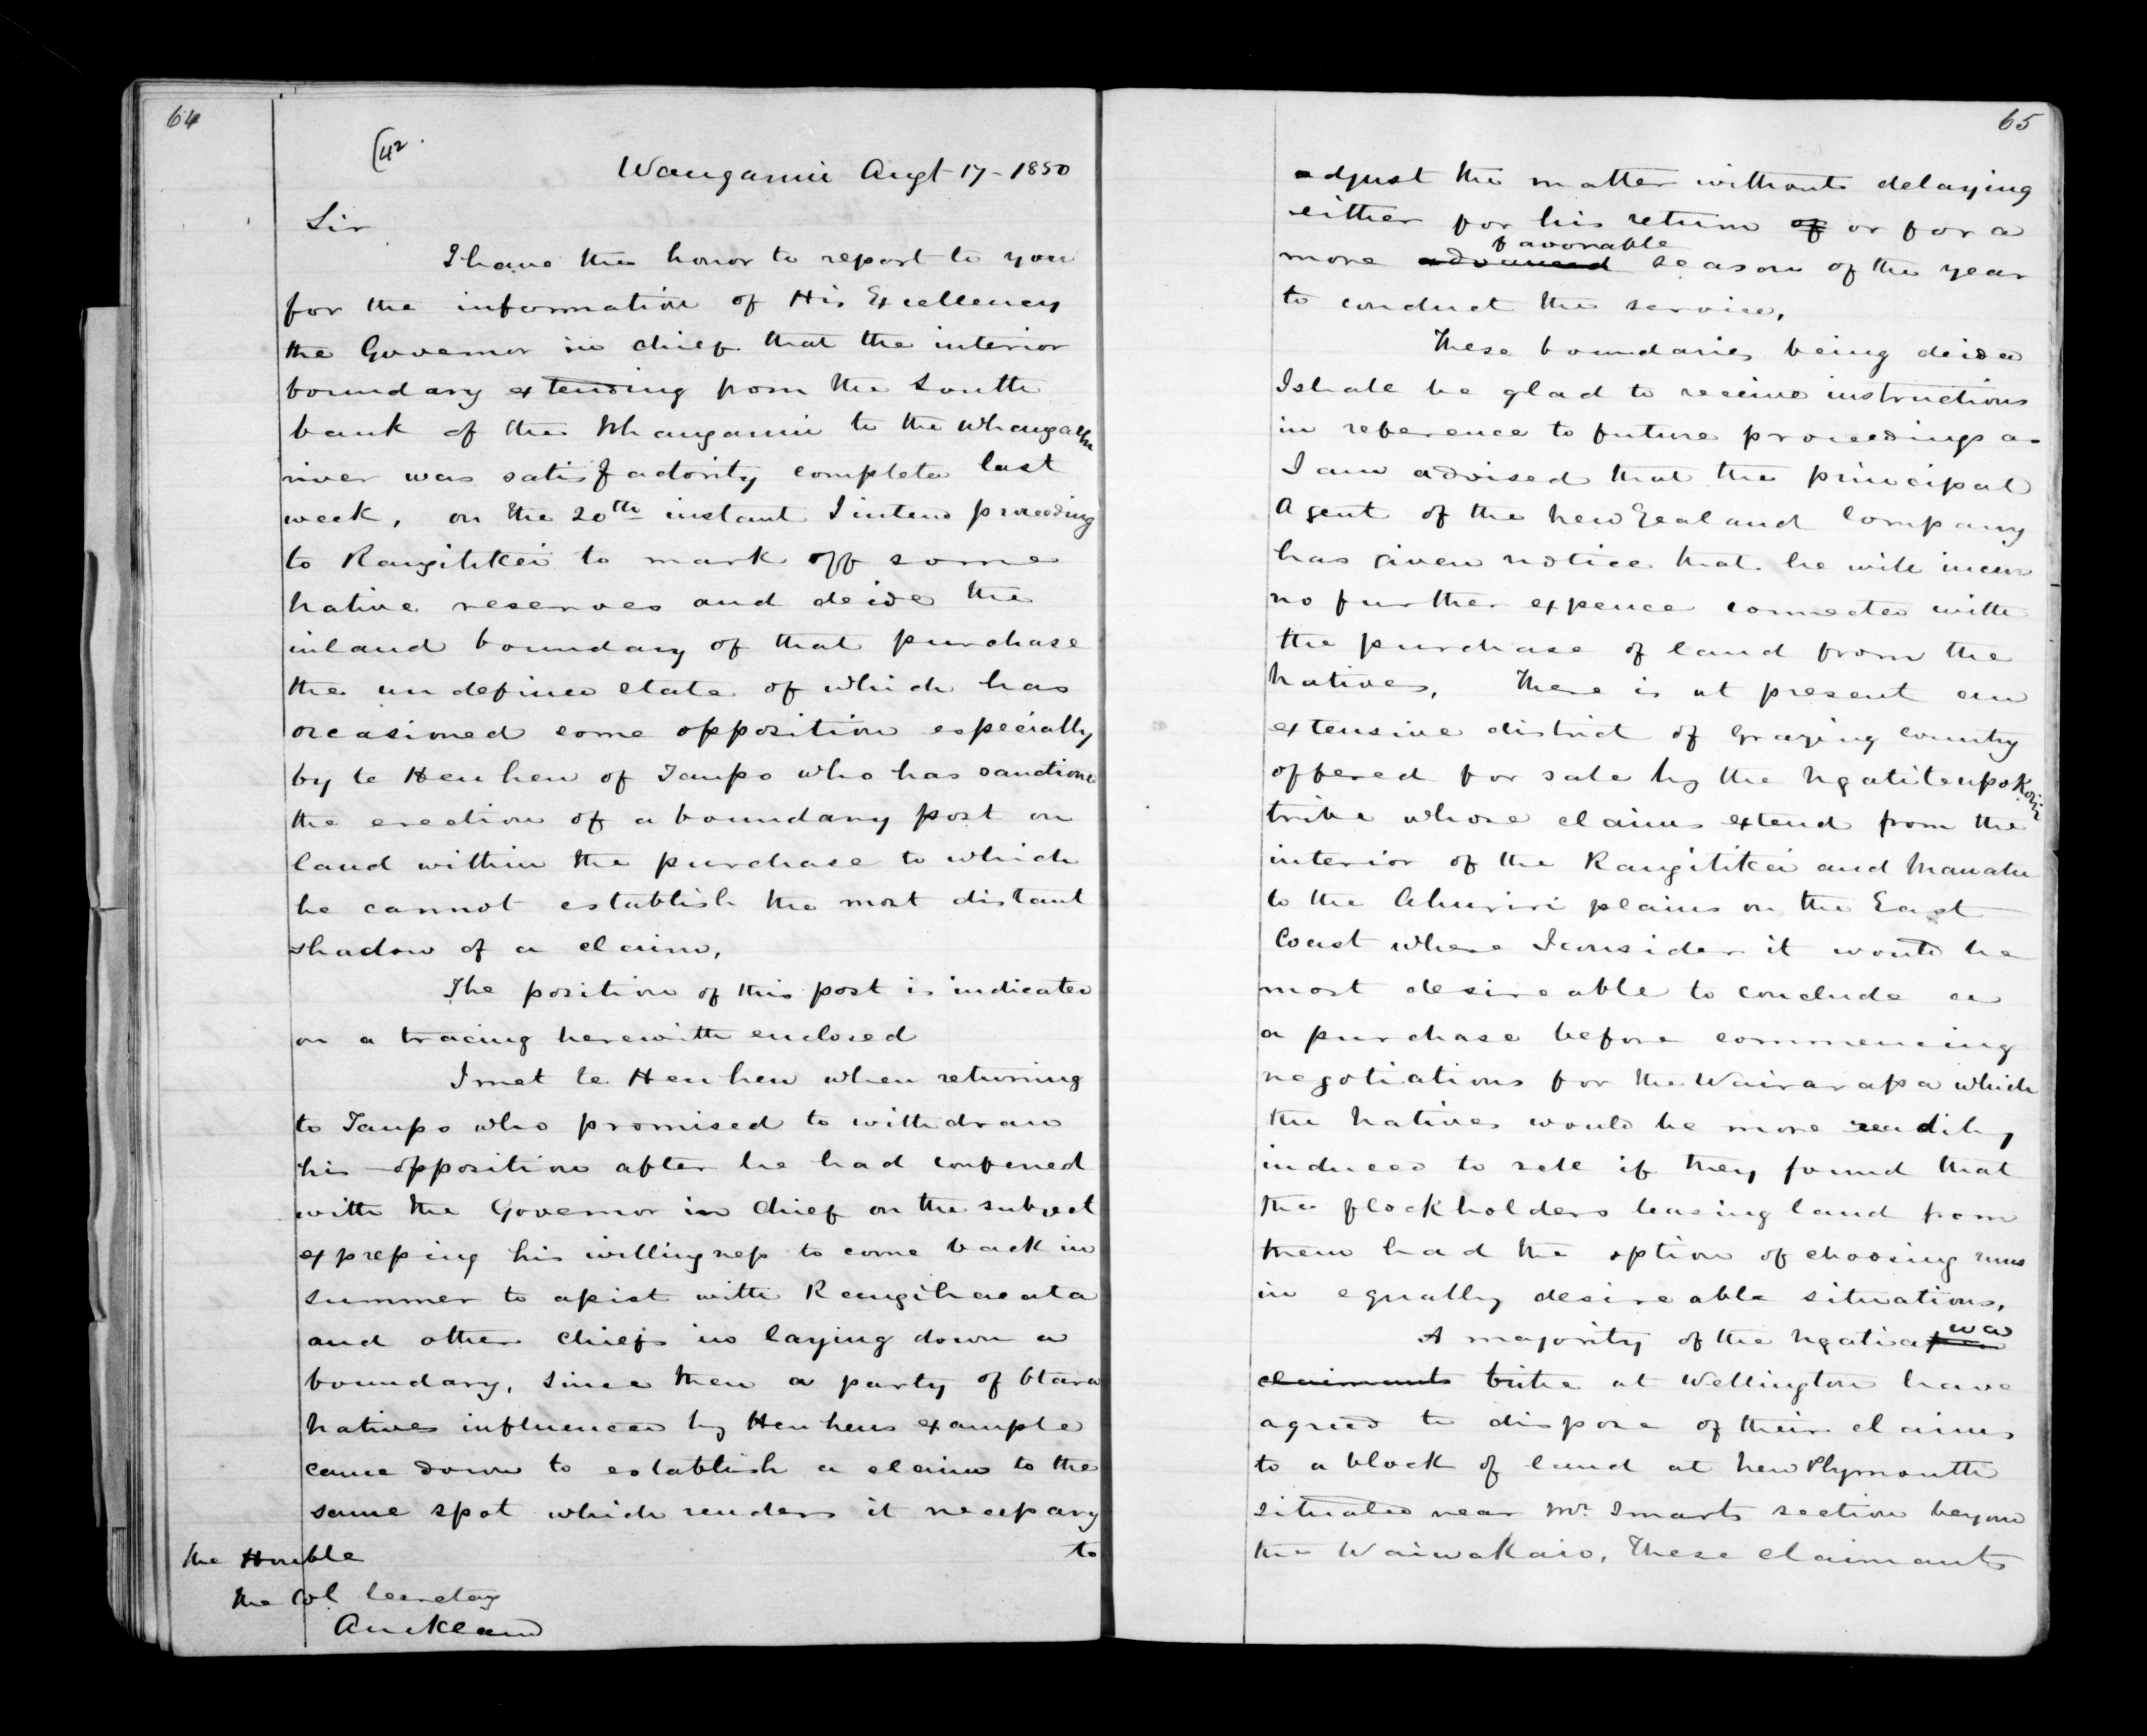 64
(42.
Wanganui Augt 17 - 1850
Sir
I have the honor to report to you
for the information of His Excellency
the Governor in chief that the interior
boundary extending from the South
bank of the Whanganui to the Whangaehu
river was satisfactority completed last
week, on the 20th instant I intend proceeding
to Rangitikei to mark off some
native reserves and decide the
inland boundary of that purchase
the undefined state of which has
occasioned some opposition especially
by te Heuheu of Taupo who has sanctioned
the erection of a boundary post on
land within the purchase to which
he cannot establish the most distant
shadow of a claim,
The position of this post is indicated
on a tracing herewith enclosed
I met te Heuheu when returning
to Taupo who promised to withdraw
his opposition after he had conferred
with the Governor in Chief on the subject
expressing his willingness to come back in
summer to assist with Rangihaeata
and other chiefs in laying down a
boundary, since then a party of Otara
natives influenced by Heuheus example
came down to establish a claim to the
same spot which renders it necessary
to
the Honble
the Col Secretary
Auckland
65
adjust the matter without delaying
either for his return of or for a
favorable
more advanced season of the year
to conduct the service,
These boundaries being decided
I shall be glad to receive instructions
in reference to future proceedings as
I am advised that the principal
Agent of the New Zealand Company
has given notice that he will incur
no further expence connected with
the purchase of land from the
natives, There is at present an
extensive district of grazing country
offered for sale by the Ngatiteupokoiri
tribe whose claims extend from the
interior of the Rangitikei and Manatu
to the Ahuriri plains on the East
Coast where I consider it would be
most desireable to conclude a
a purchase before commencing
negotiations for the Wairarapa which
the natives would be more readily
induced to sell if they found that
the flockholders leasing land from
them had the option of choosing runs
in equally desireable situations,
wa
A majority of the Ngatia
claimants tribe at Wellington have
agreed to dispose of their claims
to a block of land at New Plymouth
situated near Mr. Smarts section beyond
the Waiwakaio, These claimants